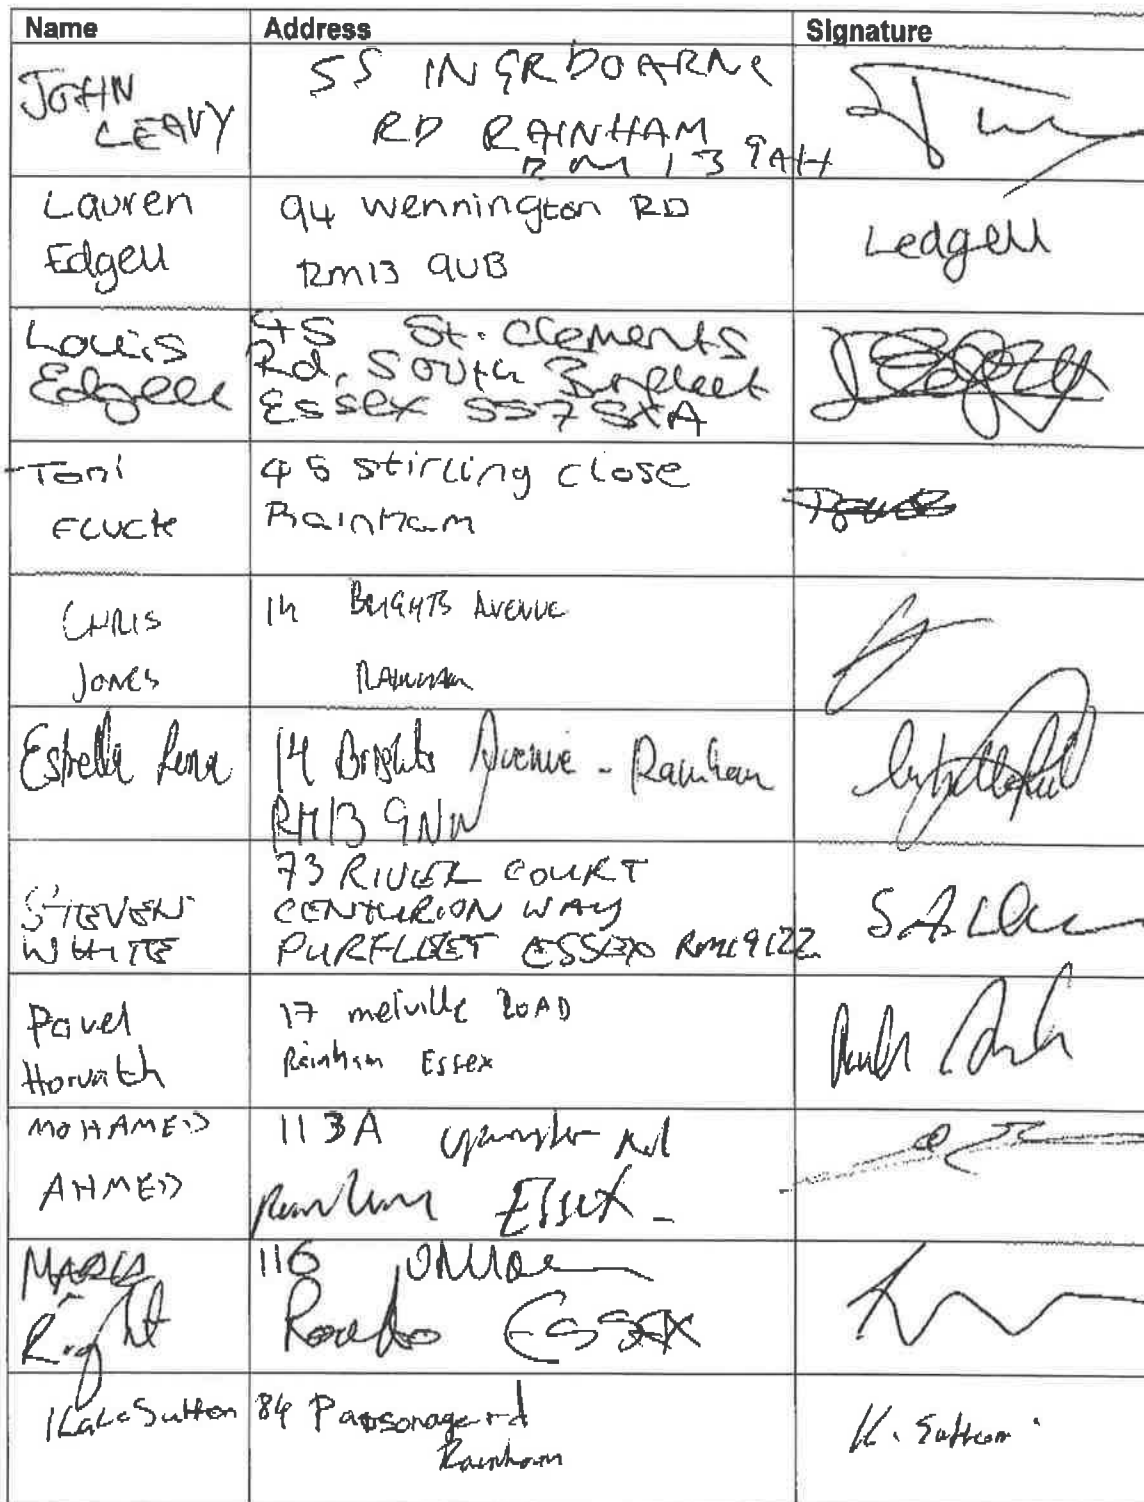 Name Address Signature
JOHN
LEAVY
55 INGRBOARNE
RD RAINHAM
RM13 9AH
Lauren
Edgell
94 Wennington RD
RM13 9UB
Ledgell
Louis
Edgell
45 St. Clements
Rd, South Benfleet
Essex SS7 5XA
Toni
FLUCK
45 stirling close
Rainham
CHRIS
JONES
14 BRIGHTS AVENUE
RAINHAM
Estrella
14 Brights Avenue - Rainham
RM13 9NW
STEVEN
WHITE
73 RIVER COURT
CENTURION WAY
PURFLEET ESSEX RM19 1ZZ
Pavel
Horvath
17 melville ROAD
Rainham Essex
MOHAMED
AHMED
113A Upminster Rd
Rainham Essex -
Right
116
ESSEX
Sutton
84 Parsonage rd
Rainham
K. Sutton